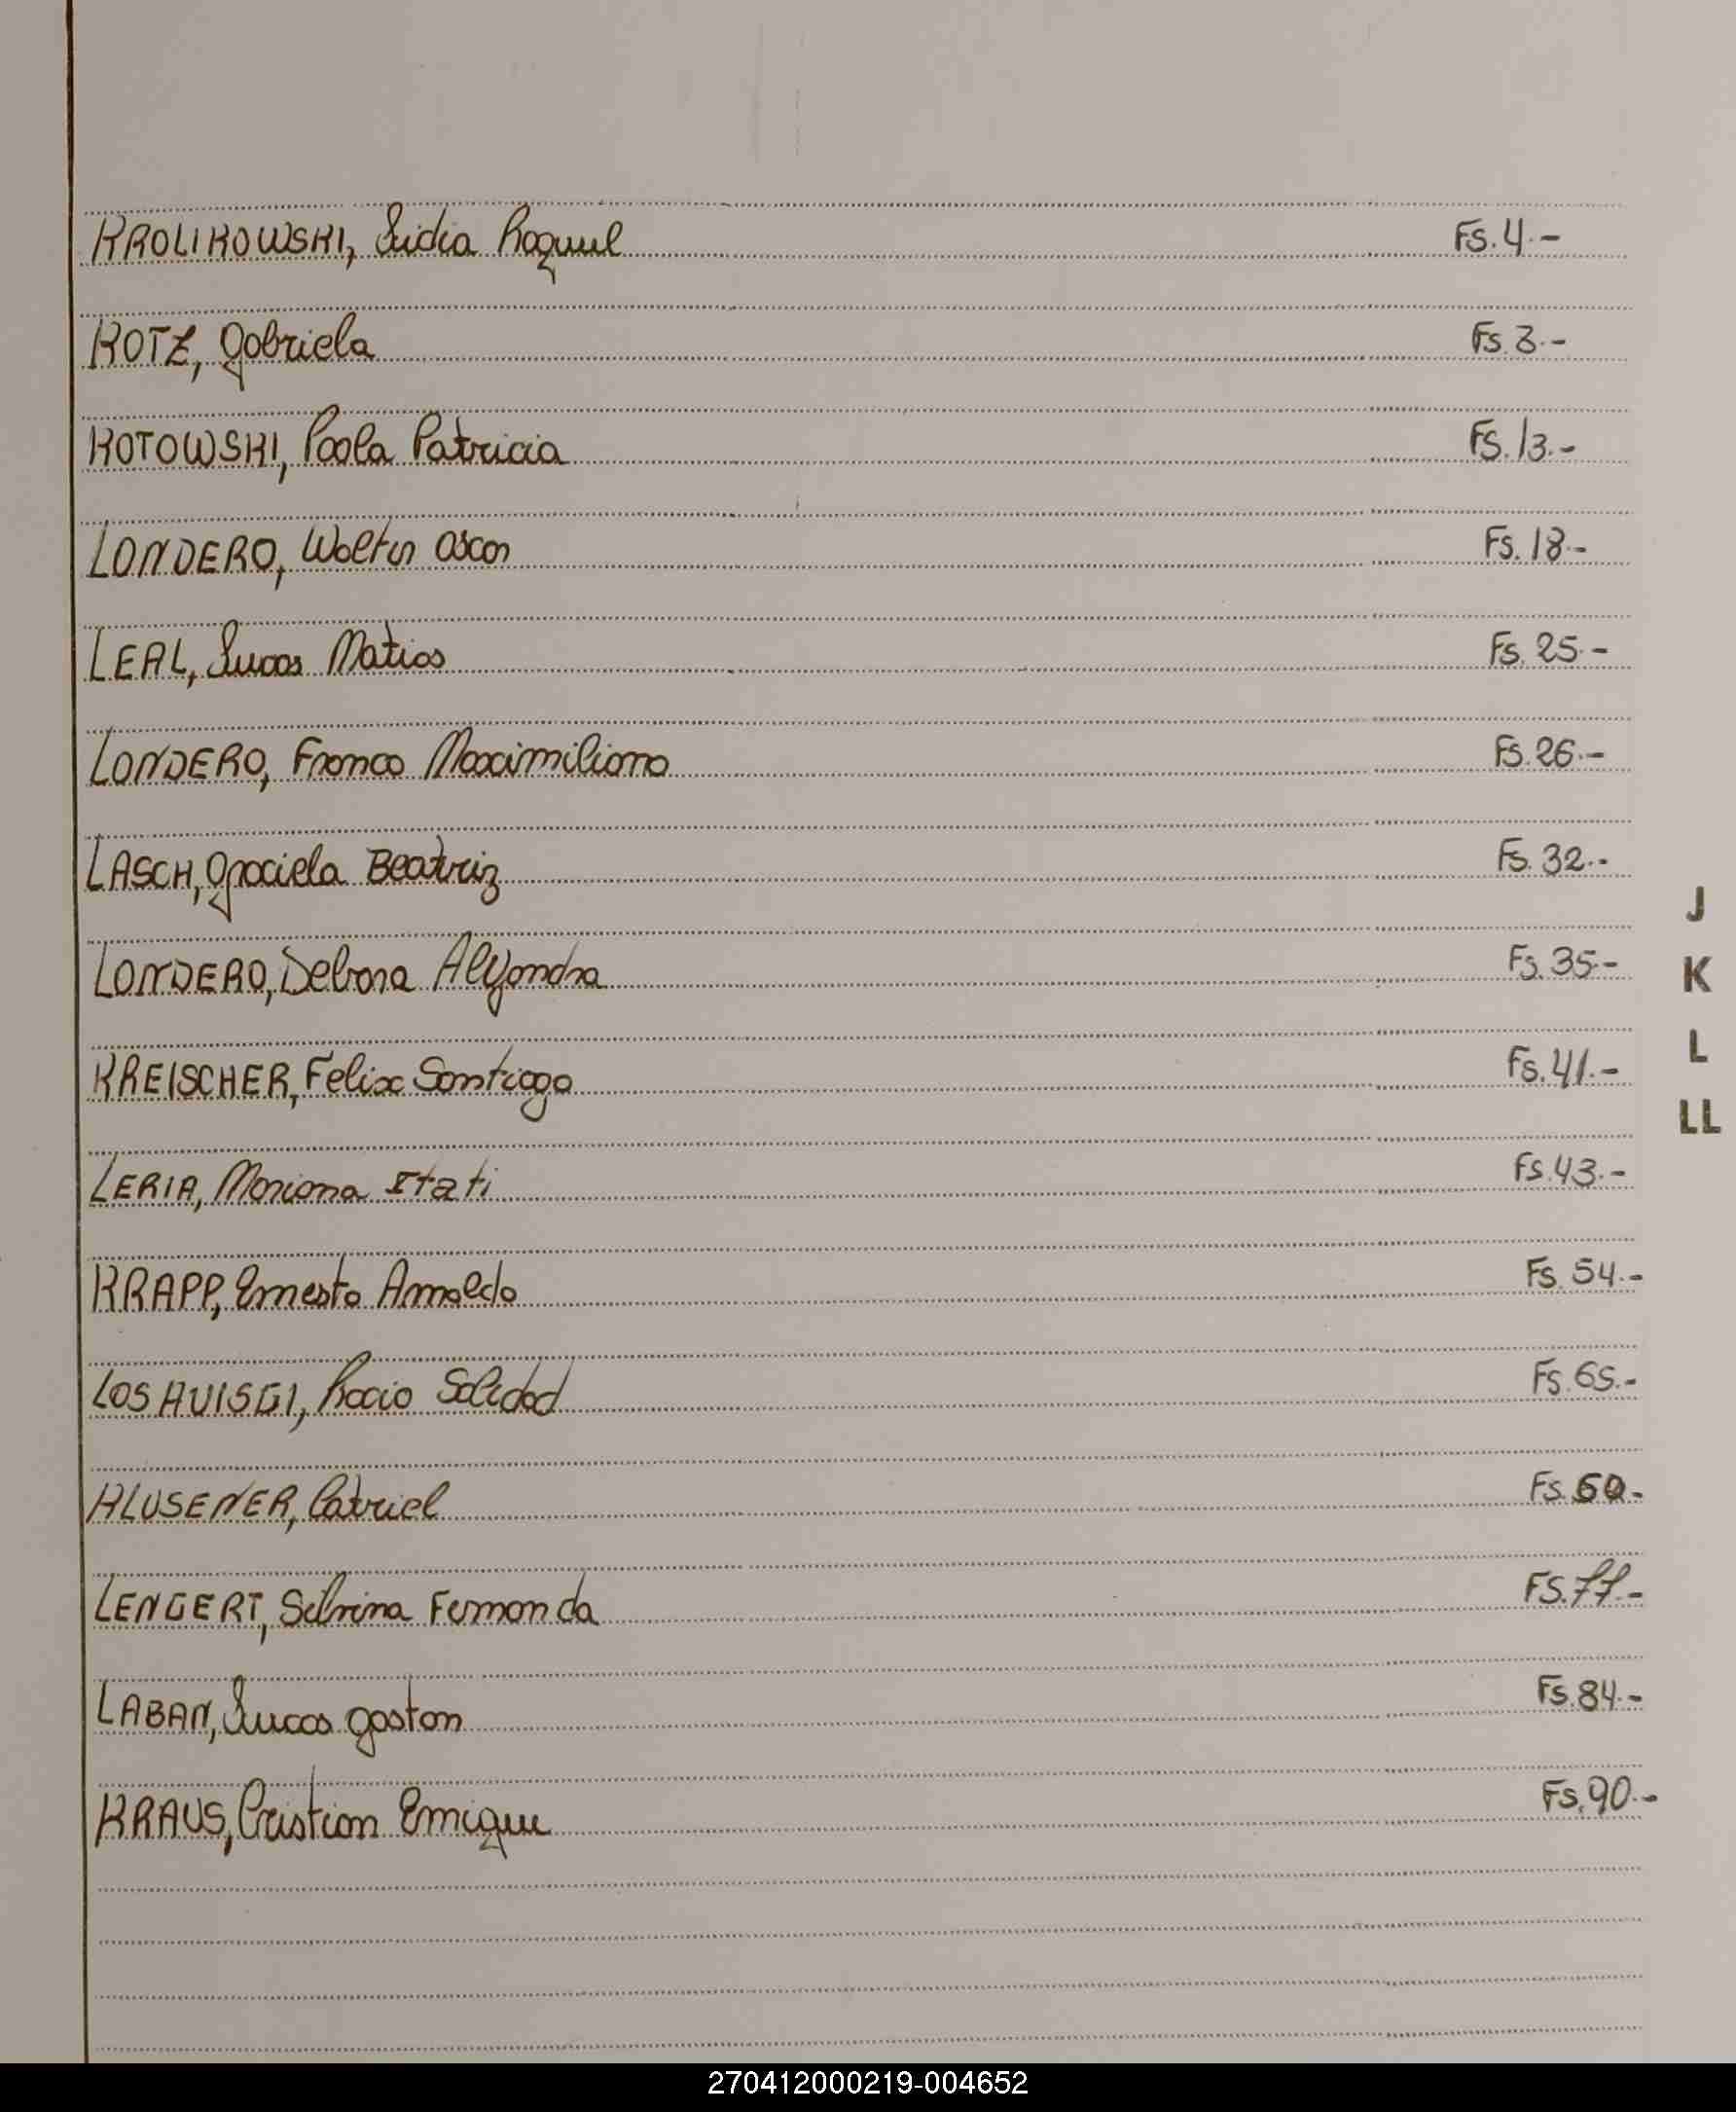 KROLIKOWSKI, Lidia Raquel Fs. 4.-
KOTZ, Gabriela Fs. 3.-
KOTOWSKI, Paola Patricia Fs. 13.-
LONDERO, Walter Oscar Fs. 18.-
LEAL, Lucas Matias Fs. 25.-
LONDERO, Franco Maximiliano Fs. 26.-
LASCH, Graciela Beatriz Fs. 32.-
LONDERO, Debora Alejandra Fs. 35.-
KREISCHER, Felix Santiago Fs. 41.-
LERIA, Mariana Itati Fs. 43.-
KRAPP, Ernesto Arnoldo Fs. 54.-
Rocio Soledad Fs. 65.-
KLUSENER, Catriel Fs. 60.-
LENGERT, Silvina Fernanda Fs. 77.-
LABAN, Lucas Gaston Fs. 84.-
KRAUS, Cristian Enrique Fs. 90.-
J
K
L
LL
270412000219-004652